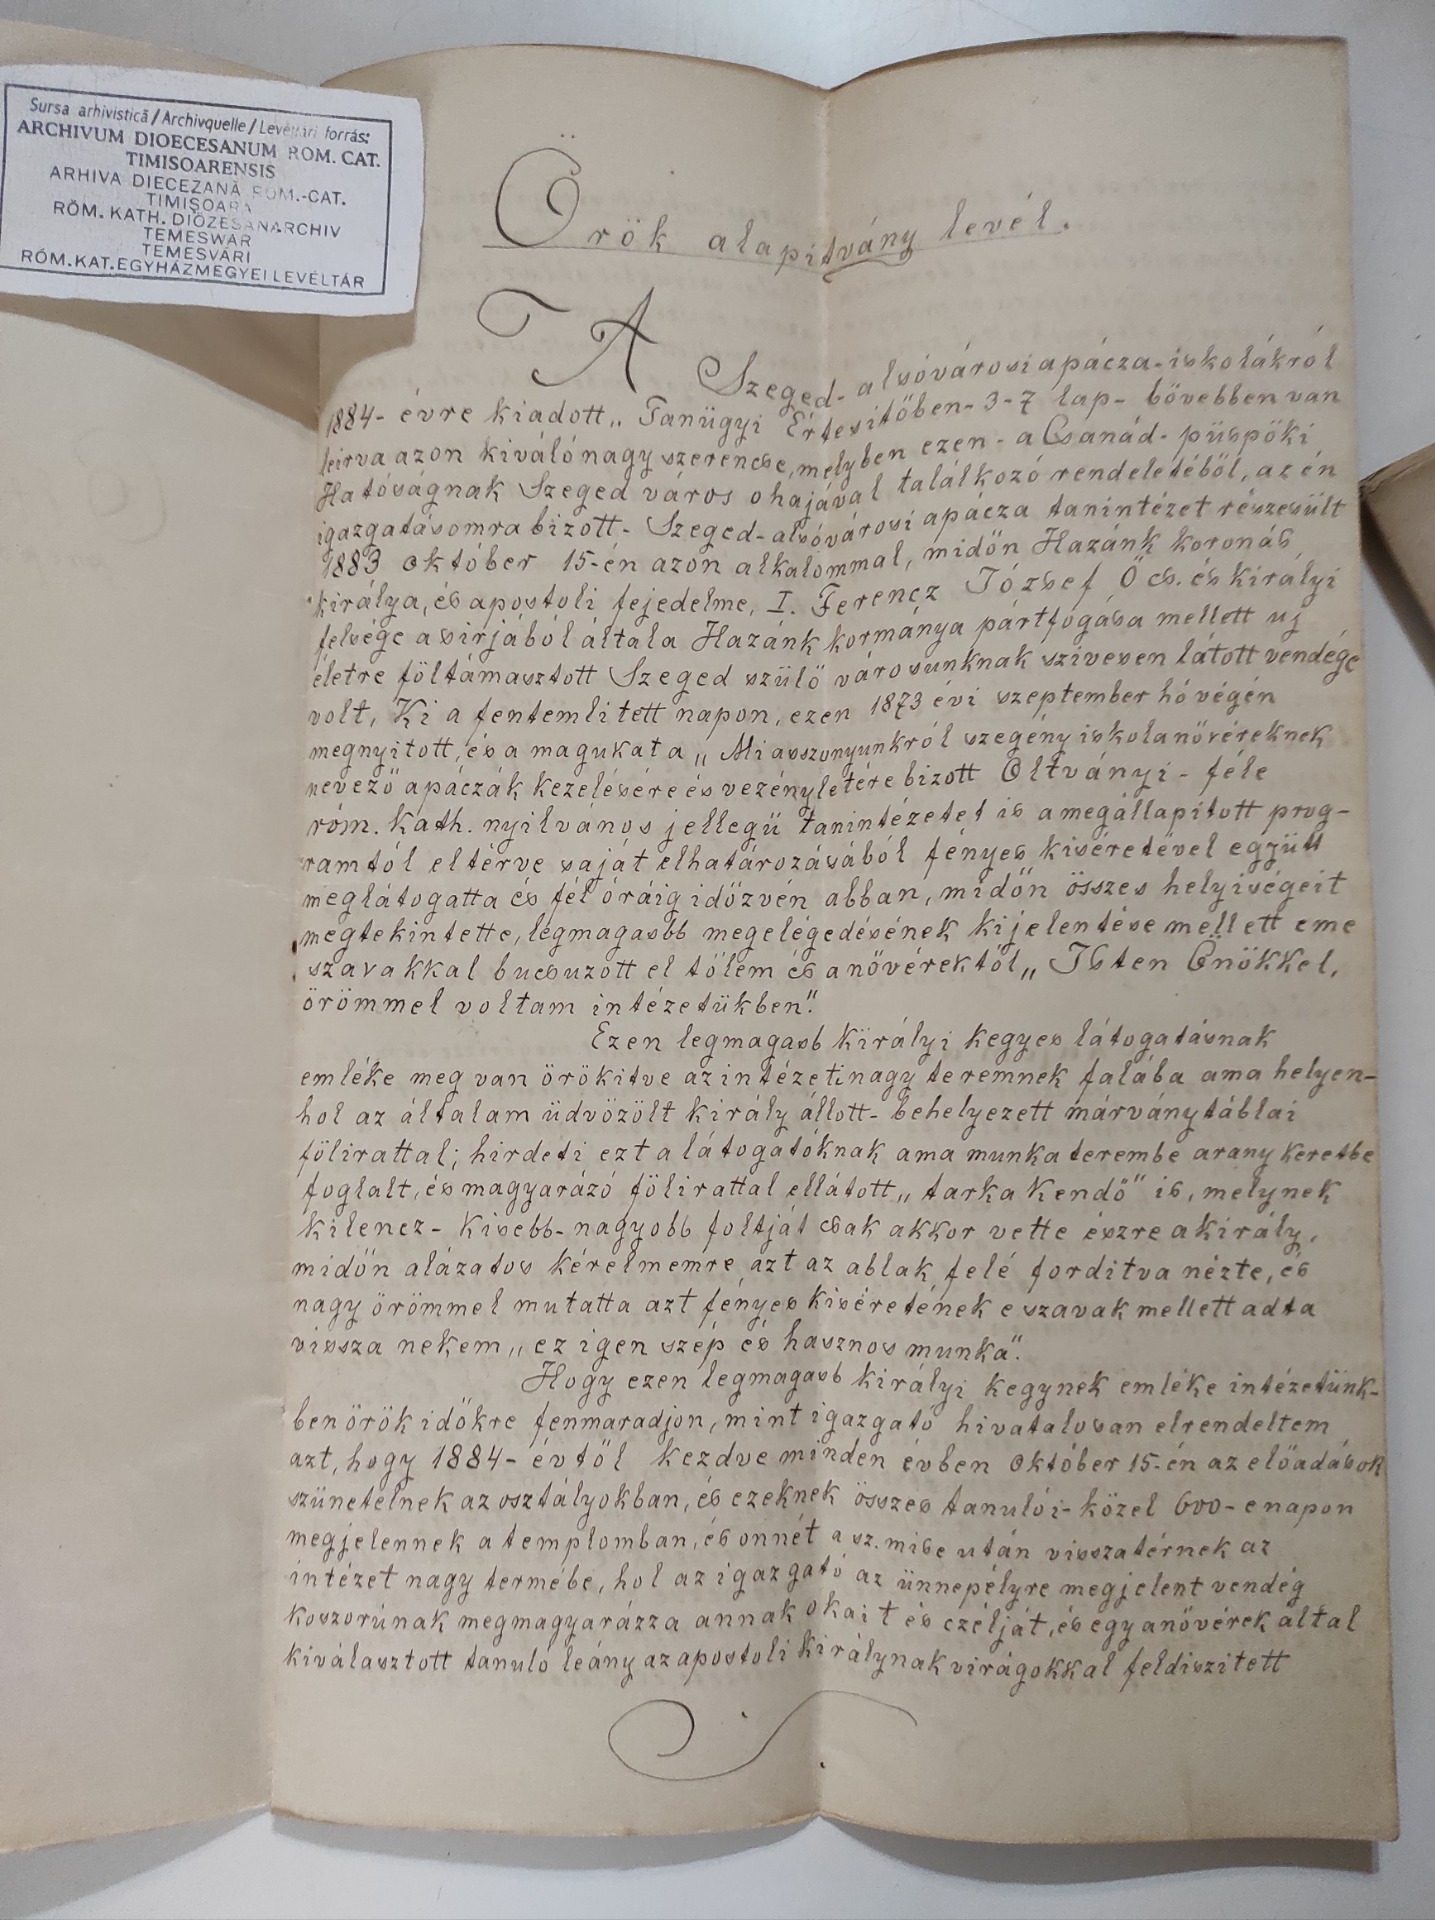 Sursa arhivistică / Archivquelle / Levéltári forrás:
ARCHIVUM DIOECESANUM ROM. CAT.
TIMISOARENSIS
ARHIVA DIECEZANĂ ROM.-CAT.
TIMIȘOARA
RÖM. KATH. DIÖZESANARCHIV
TEMESWAR
TEMESVÁRI
RÓM.KAT.EGYHÁZMEGYEI LEVÉLTÁR
Örök alapitvány levél.
A Szeged-alsóvárosi apácza-iskolákról
1884- évre kiadott „Tanügyi Értesitőben- 3-7 lap- bövebben van
leirva azon kiváló nagy szerencse, melyben ezen - a Csanád- püspöki
Hatóságnak Szeged város ohajával találkozó rendeletéböl, az én
igazgatásomra bizott- Szeged-alsóvárosi apácza tanintézet részesült
1883 október 15-én azon alkalommal, midőn Hazánk koronás
királya, és apostoli fejedelme, I. Ferencz József Ő cs. és királyi
felsége a sirjából általa Hazánk kormánya pártfogása mellett uj
életre föltámasztott Szeged szülö városunknak szivesen látott vendége
volt, Ki a fentemlitett napon, ezen 1873 évi szeptember hó végén
megnyitott, és a magukat a „Miasszonyunkról szegény iskolanövéreknek
nevező apáczák kezelésére és vezényletére bizott Oltványi - féle
róm. kath. nyilvános jellegü tanintézetet is a megállapitott prog-
ramtól eltérve saját elhatározásából fényes kiséretével együtt
meglátogatta és fél óráig időzvén abban, midőn összes helyiségeit
megtekintette, legmagasbb megelégedésének kijelentése mellett eme
szavakkal bucsuzott el tőlem és a növérektől „Isten Önökkel,
örömmel voltam intézetükben".
Ezen legmagasb királyi kegyes látogatásnak
emléke meg van örökitve az intézeti nagy teremnek falába ama helyen-
hol az általam üdvözölt király állott- behelyezett márványtáblai
fölirattal; hirdeti ezt a látogatóknak ama munka terembe arany keretbe
foglalt, és magyarázó fölirattal ellátott „tarka Kendő" is, melynek
kilencz - kisebb-nagyobb foltját csak akkor vette észre a király,
midőn alázatos kérelmemre azt az ablak felé forditva nézte, és
nagy örömmel mutatta azt fényes kiséretének e szavak mellett adta
vissza nekem „ez igen szép és hasznos munka".
Hogy ezen legmagasb királyi kegynek emléke intézetünk-
ben örök időkre fenmaradjon, mint igazgató hivatalosan elrendeltem
azt, hogy 1884- évtől kezdve minden évben október 15-én az előadások
szünetelnek az osztályokban, és ezeknek összes tanulói- közel 600- e napon
megjelennek a templomban, és onnét a sz. mise után visszatérnek az
intézet nagy termébe, hol az igazgató az ünnepélyre megjelent vendég
koszorúnak megmagyarázza annak okait és czélját, és egy a növérek által
kiválasztott tanuló leány az apostoli királynak virágokkal feldiszitett